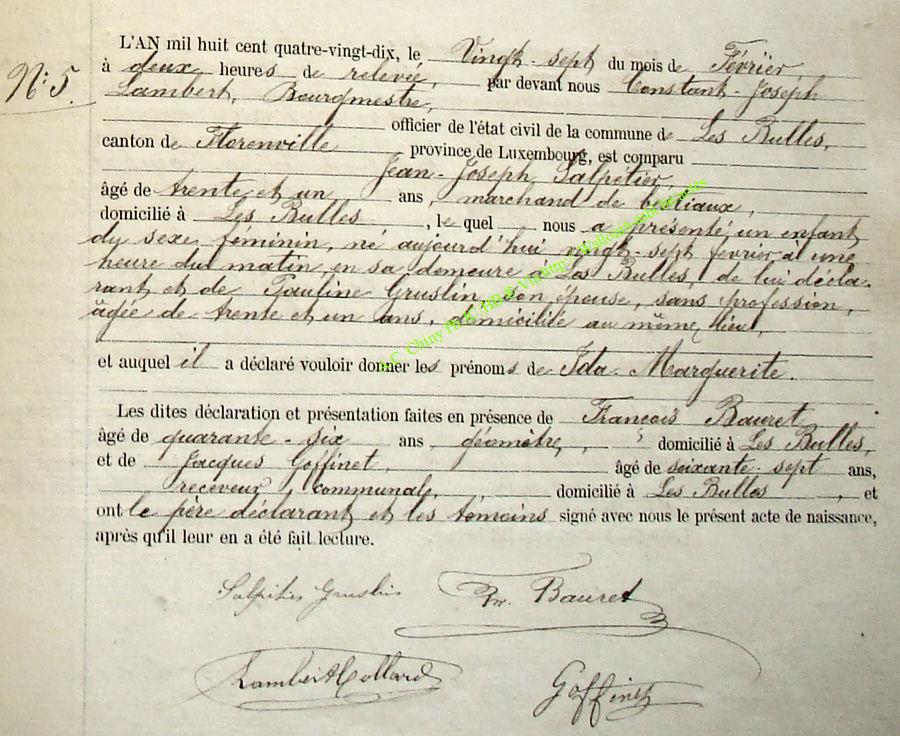 N° 5.
L'AN mil huit cent quatre-vingt-dix, le Vingt-sept du mois de Février,
à deux heures de relevée, par devant nous Constant-Joseph
Lambert, Bourgmestre,
officier de l'état civil de la commune de Les Bulles,
canton de Florenville province de Luxembourg, est comparu
Jean-Joseph Salpetier,
âgé de trente et un ans, marchand de bestiaux,
domicilié à Les Bulles, lequel nous a présenté un enfant
du sexe féminin, né aujourd'hui vingt sept fevrier, à une
heure du matin, en sa demeure à Les Bulles, de lui décla-
rant et de Pauline Gruslin, son épouse, sans profession,
âgée de trente et un ans, domicilié au même lieu,
et auquel il a déclaré vouloir donner les prénoms de Ida-Marguerite.
Les dites déclaration et présentation faites en présence de François Bauret
âgé de quarante-six ans géomètre, domicilié à Les Bulles,
et de Jacques Goffinet, âgé de soixante-sept ans,
receveur communal, domicilié à Les Bulles, et
ont le père déclarant et les temoins signé avec nous le présent acte de naissance,
après qu'il leur en a été fait lecture.
Salpetier Gruslin Fr. Bauret
Lambert Collard Goffinet